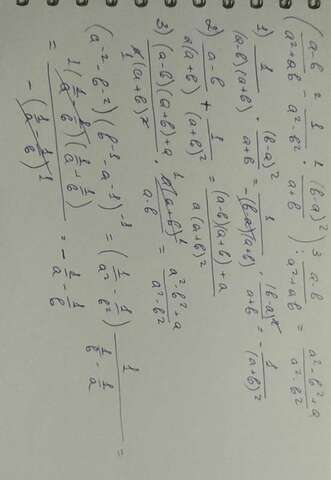 ( (a-b)/(a²+ab) ²- 1/(a²-b²) ¹· (b-a)²/(a+b) ) ³: (a-b)/(a²+ab) = (a²-b²+a)/(a²-b²)
1) 1/((a-b)(a+b)) · (b-a)²/(a+b) = - 1/((b-a)(a+b)) · (b-a)²/(a+b) = - 1/(a+b)²
2) (a-b)/(a(a+b)) + 1/(a+b)² = ((a-b)(a+b)+a)/(a(a+b)²)
3) ((a-b)(a+b)+a)/(a(a+b)²) · a(a+b)/(a-b) = (a²-b²+a)/(a²-b²)
(a⁻²-b⁻²)(b⁻¹-a⁻¹)⁻¹ = (1/a² - 1/b²) · 1/(1/b - 1/a) =
= (1/a - 1/b)(1/a + 1/b) / -(1/a - 1/b) = - 1/a - 1/b